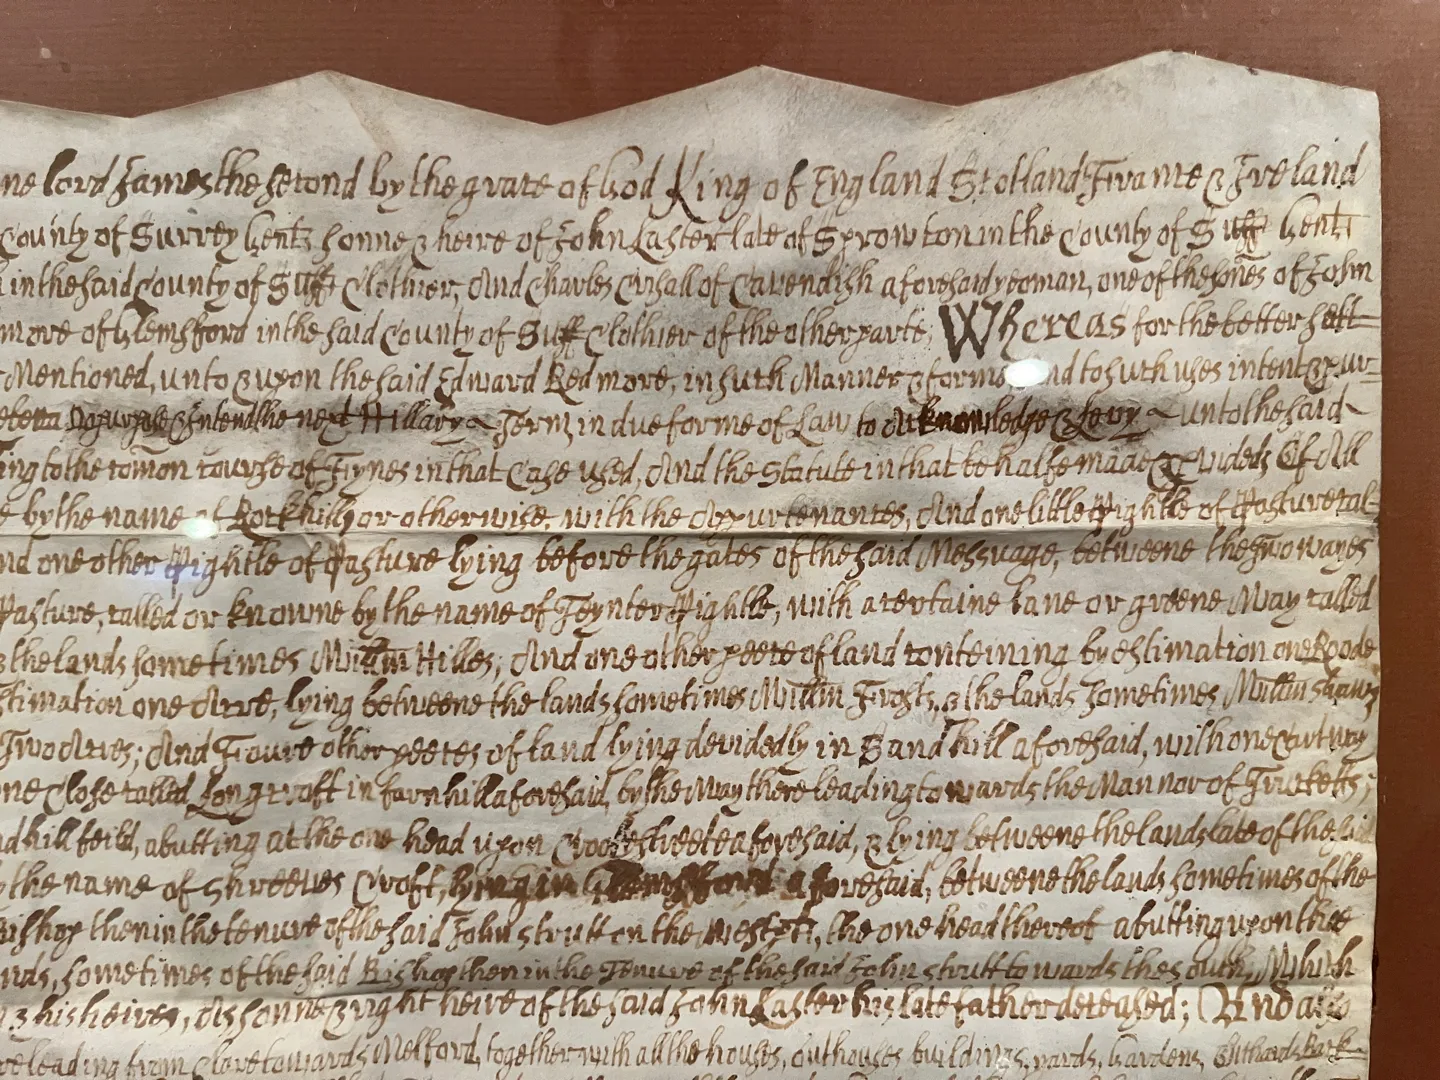 ne lord James the second by the grace of God King of England Scotland France & Ireland
County of Surrey Gentz sonne & heire of John Laster late of Sprowton in the County of Suff Gent
in the said County of Suff Clothier, And Charles of Cavendish aforesaid yeoman, one of the sones of John
more of Glemsford in the said County of Suff Clothier of the other parte, Whereas for the better sett
Mentioned, unto & upon the said Edward Redmore, in such Manner & forme and to such uses intent & pur-
& Intend the next Hillary Term, in due forme of Law to Acknowledge & Levy unto the said
ing to the comon course of Fynes in that Case used, And the Statute in that behalfe made & p vided, Of All
e by the name of or otherwise, with the Appurtenances, And one little Pightle of Pasture cal
nd one other Pightle of Pasture lying before the gates of the said Messuage, betweene the two wayes
Pasture, called or knowne by the name of Teynter Pightle, with a certaine lane or greene Way called
& the lands sometimes Hilles; And one other peece of land conteining by estimation one Roode
stimation one Acre, lying betweene the lands sometimes Frosts, & the lands sometimes
Two Acres; And Foure other peeces of land lying devidedly in Sandhill aforesaid, with one Cartway
ne Close called Longcroft in farnhill aforesaid, by the Way there leading towards the Mannor of Tricketts;
ndhill feild, abutting at the one head upon aforesaid, & lying betweene the lands late of the said
y the name of Shreeves Croft, lying in Glemsford aforesaid, betweene the lands sometimes of the
Bishop then in the tenure of the said John Strutt on the West pt, the one head thereof abutting upon the
nds, sometimes of the said Bishop then in the Tenure of the said John Strutt towards the South, Which
& his heires, As sonne & right heire of the said John Laster his late father deceased; And also
re leading from Clare towards Melford, together with all the houses, outhouses buildings, yards, Gardens, Orchards